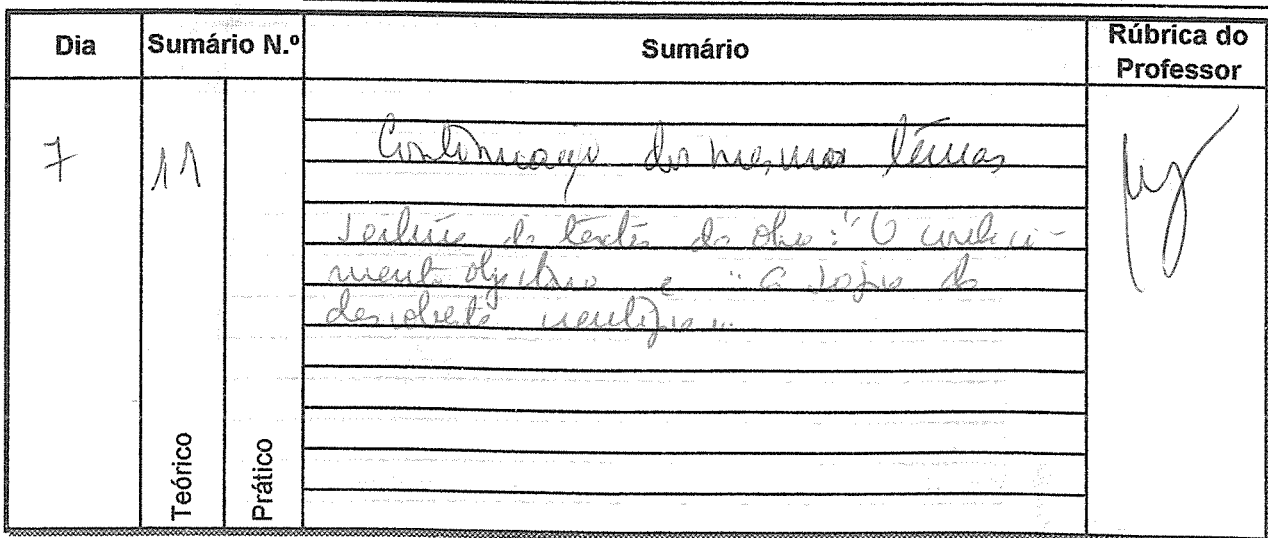 Dia
Sumário N.º
Sumário
Rúbrica do
Professor
7
11
Continuação dos mesmos temas
Leitura de textos da obra: "O conheci-
mento objectivo" e "A Lógica da
descoberta científica".
Teórico
Prático